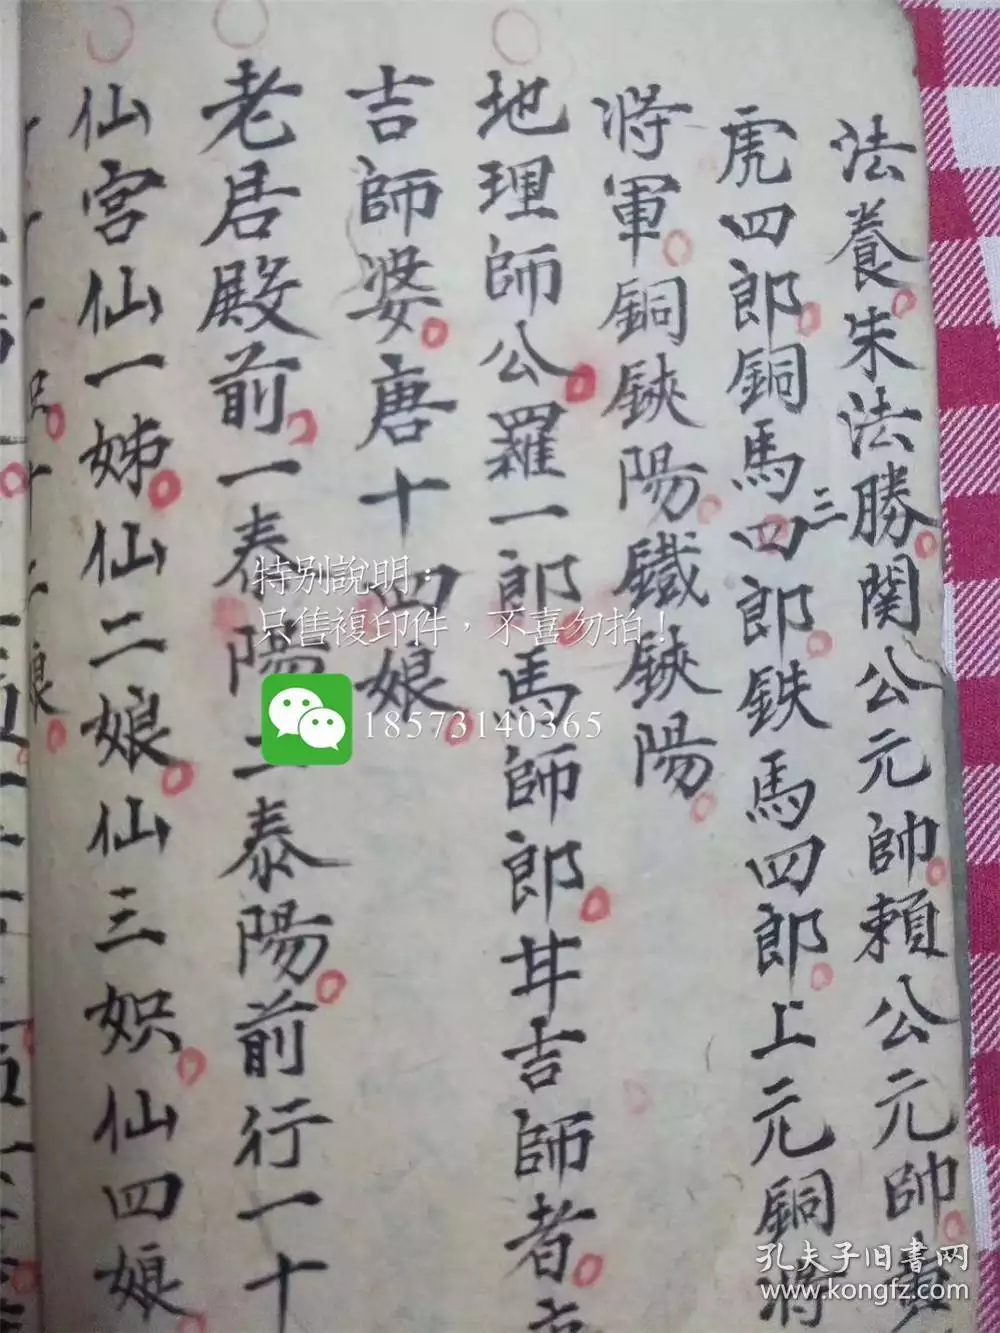 法養朱法勝関公元帥賴公元帥
虎四郎銅馬三四郎鉄馬四郎上元銅將
將軍銅鋏陽鐵鋏陽
地理師公羅一郎馬師郎甘吉師者
吉師婆唐十四娘
老君殿前一泰陽二泰陽前行一十
仙宮仙一姊仙二娘仙三娘仙四娘
特别說明：
只售複印件，不喜勿拍！
18573140365
孔夫子旧書网
www.kongfz.com